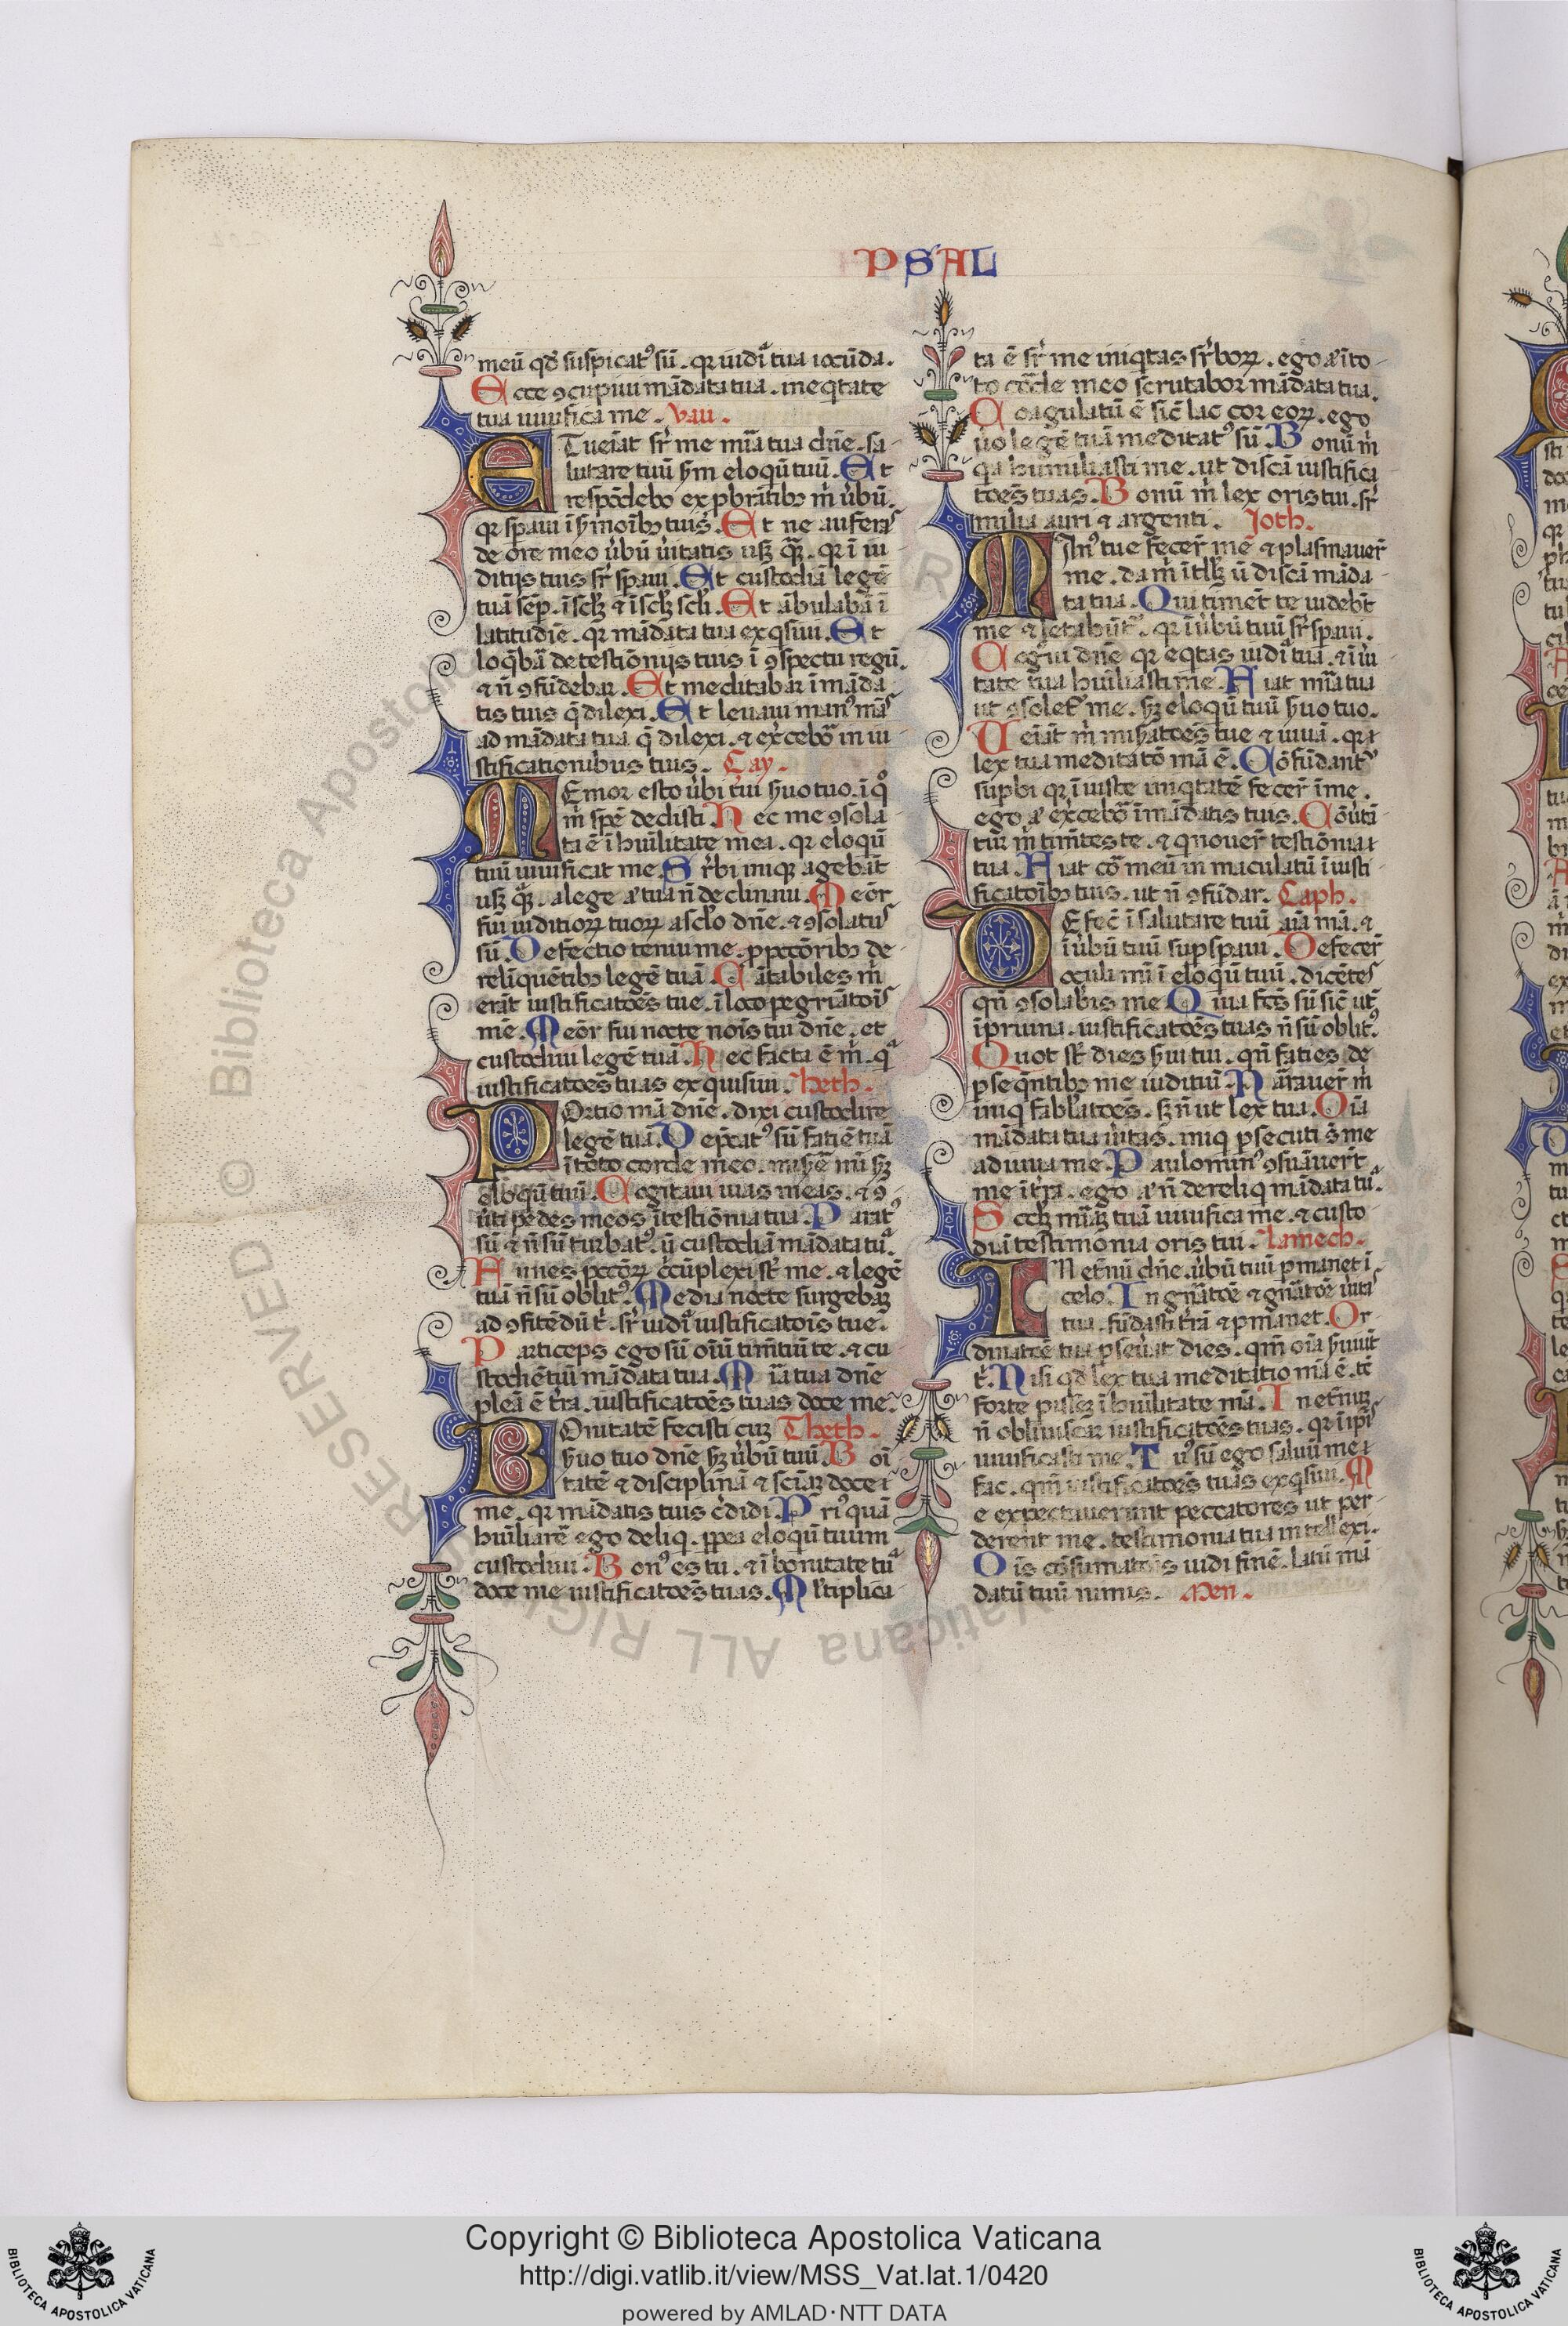 PSAL
meū qd' suspicat⁹ sū. qr iudi͛ tua iocūda.
Ecce ꝯcupiui mādata tua. ineq̇tate
tua uiuifica me. Vau.
ETueīat sr̄ me mīa tua dn̄e. sa-
lutare tuū ẜm eloqū tuū. Et
respōdebo exprobrātib⁹ m̄ úbū.
qr spaui ī ẜmoīb⁹ tuis. Et ne auferas
de ore meo úbū úitatis usqꝫ q̄q̄. qr ī iu
ditijs tuis sr̄ spaui. Et custodiā legē
tuā sēp. ī sclꝫ ⁊ ī sclꝫ scli. Et ābulabā ī
latitudīe. qr mādata tua exq̇siui. Et
loq̄bā de testīōnijs tuis ī ꝯspectu regū.
⁊ ñ ꝯfūdebar. Et meditabar ī māda
tis tuis q̄ dilexi. Et leuaui man⁹ mās
ad mādata tua q̄ dilexi. ⁊ ex̄cebor in iu-
stificationibus tuis. Cay.
MEmor esto úbi tui ẜuo tuo. ī q°
m̄ spē dedisti. Hec me ꝯsola-
ta ē ī hūilitate mea. qr eloqū
tuū uiuificat me. Sr̄bi iniq̇ agebāt
usqꝫ q̄q̄. a lege aͧ tua ñ declinaui. Meōr
fui iuditioꝝ tuoꝝ a sclo dn̄e. ⁊ ꝯsolatus
sū. Defectio tenuit me. ꝓ peccōrib⁹ de-
relīquētib⁹ legē tuā. Cātabiles m̄
erāt iustificatōes tue. ī loco pegrīatōis
mē. Meōr fui nocte noīs tui dn̄e. et
custodiui legē tuā. Hec facta ē m̄. qͣ
iustificatōes tuas exquisiui. Heth.
POrtio mā dn̄e. dixi custodire
legē tuā. Depcat⁹ sū fatiē tuā
ī toto corde meo. miserē mī ẜꝫ
eloqū tuū. Cogitaui uias meas. ⁊ ꝯ-
úti pedes meos ī testīōnia tua. Parat⁹
sū ⁊ ñ sū turbat⁹. ut custodiā mādata tuͣ.
Funes pccōꝝ c̄cūplexi st̄ me. ⁊ legē
tuā ñ sū oblit⁹. Media nocte surgebaꝫ
ad ꝯfitēdū t̄. sr̄ iudiͣ iustificatōis tue.
Particeps ego sū oīū timētiū te. ⁊ cu-
stodiētiū mādata tua. Mīa tua dn̄e
plea ē t̄ra. iustificatōes tuas doce me.
BOnitatē fecisti cuꝫ Theth.
ẜuo tuo dn̄e ẜꝫ úbū tuū. Boī
tatē ⁊ disciplīnā ⁊ sciaꝫ doce
me. qr mādatis tuis c̄didi. Pri⁹quā
hūiliarē ego deliq̇. ꝓpea eloqū tuum
custodiui. Bon⁹ es tu. ⁊ ī bonitate tuͣ
doce me iustificatōes tuas. Ml̄tiplica-
ta ē sr̄ me iniq̇tas sr̄boꝝ. ego aͧ ī to-
to corde meo scrutabor mādata tua.
Coagulatū ē sic̄ lac cor eoꝝ. ego
úo legē tuā meditat⁹ sū. Bonū m̄
qͣ humiliasti me. ut discā iustifica
tōes tuas. Bonū m̄ lex oris tui. sr̄
milia auri ⁊ argenti. Joth.
MAn⁹ tue fecer̄ me ⁊ plasmauer̄
me. da m̄ ītlꝫ ut discā māda-
ta tua. Qui timēt te uidebt̄
me ⁊ letabūt᷑. qr ī úbū tuū sr̄ spaui.
Cogūi dn̄e qr eq̇tas iudi͛ tua. ⁊ ī úi
tate tua hūiliasti me. Fiat mīa tua
ut ꝯsolet᷑ me. ẜꝫ eloqū tuū ẜuo tuo.
Ueīāt m̄ miẜatōes tue ⁊ uiuā. qͣ
lex tua meditatō mā ē. Cōfūdant᷑
supbi qr īiuste iniq̇tatē fecer̄ ī me.
ego aͧ ex̄cebor ī mādatis tuis. Cōútā
tur m̄ timētes te. ⁊ q̇ nouer̄ testīōnia
tua. Fiat cor meū inmaculatū ī iusti
ficatoīb⁹ tuis. ut ñ ꝯfūdar. Caph.
DEfec̄ ī salutare tuū aīa mā. ⁊
ī úbū tuū supspaui. Defecer̄
oculi mī ī eloqū tuū. dicētes
qn̄ ꝯsolabis me. Quia fcs̄ sū sic̄ ut̄
ī pruina. iustificatōes tuas ñ sū oblit⁹.
Quot st̄ dies ẜui tui. qn̄ faties de
pseq̄ntib⁹ me iuditiū. Nārauer̄ m̄
iniq̇ fablatōes. sꝫ ñ ut lex tua. Oīa
mādata tua úitas. iniq̇ psecuti sʼ me
adiuua me. Paulomin⁹ ꝯsūauer̄t
me ī t̄ra. ego aͧ ñ dereliq̇ mādata tuͣ.
Scdꝫ mīaꝫ tuā uiuifica me. ⁊ custo-
diā testimōnia oris tui. Lamech.
IN et̄nū dn̄e. úbū tuū pmanet ī
celo. In gn̄atōe ⁊ gn̄atōe úitas
tua. fūdasti t̄rā ⁊ pmanet. Or-
dinatōe tua pseúat dies. qm̄ oīa ẜuiūt
t̄. Nisi qd' lex tua meditatio mā ē. tc̄
forte piissꝫ ī hūilitate mā. In et̄nuꝫ
ñ obliuiscar iustificatōes tuas. qr ī ipis
uiuificasti me. Tu⁹ sū ego saluū me
fac. qm̄ iustificatōes tuas exq̇siui. M
e expectauerunt peccatores ut per-
derent me. testimonia tua intellexi.
Ois cōsumatōis uidi finē. latū mā
datū tuū nimis. Men.
Copyright © Biblioteca Apostolica Vaticana
http://digi.vatlib.it/view/MSS_Vat.lat.1/0420
powered by AMLAD·NTT DATA
BIBLIOTECA APOSTOLICA VATICANA
BIBLIOTECA APOSTOLICA VATICANA
© Biblioteca Apostolica Vaticana ALL RIGHTS RESERVED